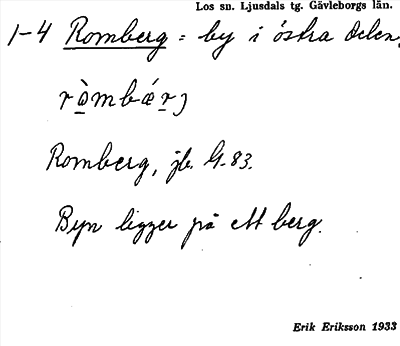 Los sn. Ljusdals tg. Gävleborgs län.
1-4 Romberg = by i östra delen.
ròmbǽrj
Romberg, jb. G-83.
Byn ligger på ett berg.
Erik Eriksson 1933